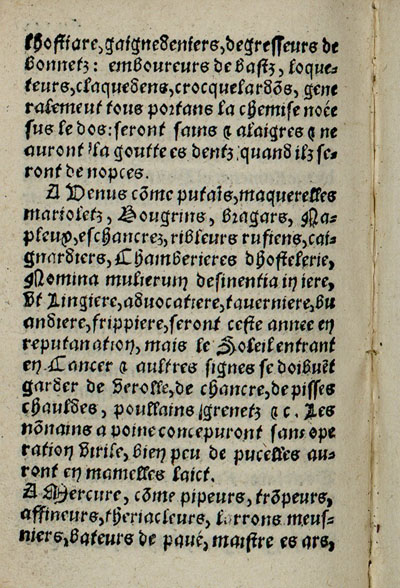 lhostiare, gaignedeniers, degresseurs de
bonnetz: emboureurs de bastz, loque-
teurs, claquedens, crocquelardõs, gene
ralement tous portans la chemise noée
sus le dos: seront sains ⁊ alaigres ⁊ ne
auront la goutte es dentz quand ilz se-
ront de nopces.
A Venus cõme putaïs, maquerelles
marioletz, Bougrins, bragars, Na-
pleux, eschancrez, ribleurs rufiens, cai-
gnardiers, Chamberieres dhostelerie,
Nomina mulierum desinentia in iere,
vt Lingiere, aduocatiere, tauerniere, bu
andiere, frippiere, seront ceste annee en
reputanation, mais le Soleil entrant
en Cancer ⁊ aultres signes se doibuẽt
garder de verolle, de chancre, de pisses
chauldes, poullains grenetz ⁊ c. Les
nõnains a poine concepuront sans ope
ration virile, bien peu de pucelles au-
ront en mamelles laict.
A Mercure, cõme pipeurs, trõpeurs,
affineurs, theriacleurs, larrons meus-
niers, bateurs de paué, maistre es ars,